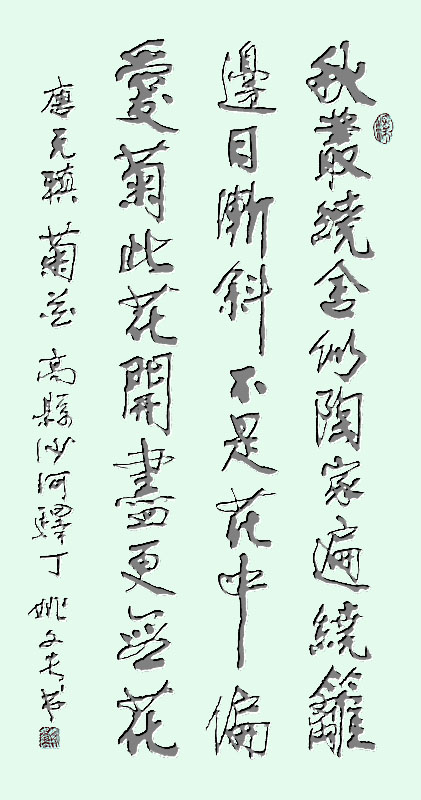 秋叢繞舍似陶家遍繞籬
邊日漸斜不是花中偏
愛菊此花開盡更無花
唐元稹菊花 高縣沙河驛丁 姚文书